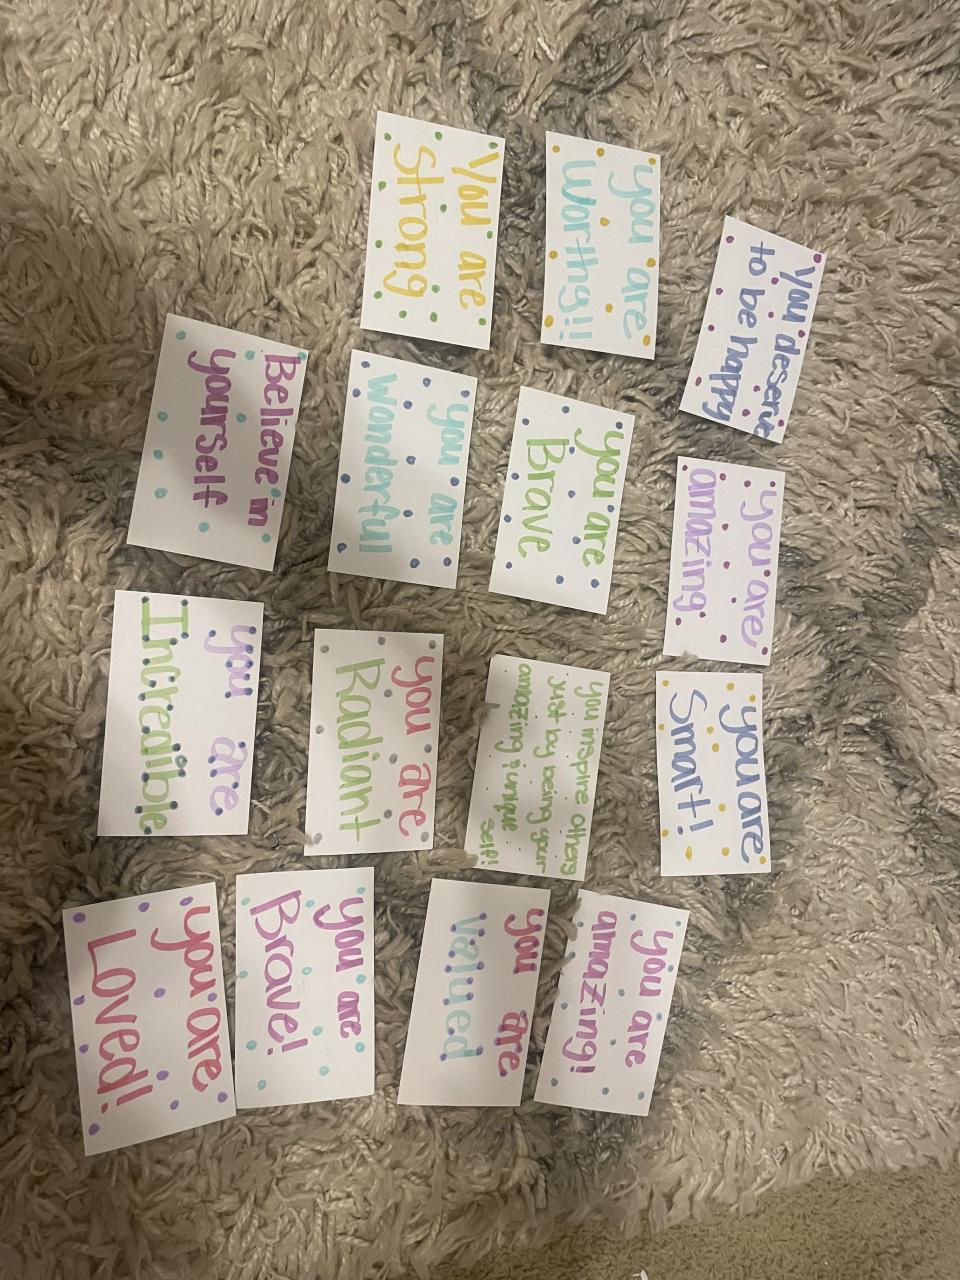 You deserve
to be happy
you are
amazing
you are
Smart!
you are
worthy!!
you are
Brave
you inspire others
just by being your
amazing & unique
self!
you are
amazing!
You are
Strong
you are
wonderful
you are
Radiant
you are
valued
Believe in
yourself
you are
Incredible
you are
Brave!
you are
Loved!